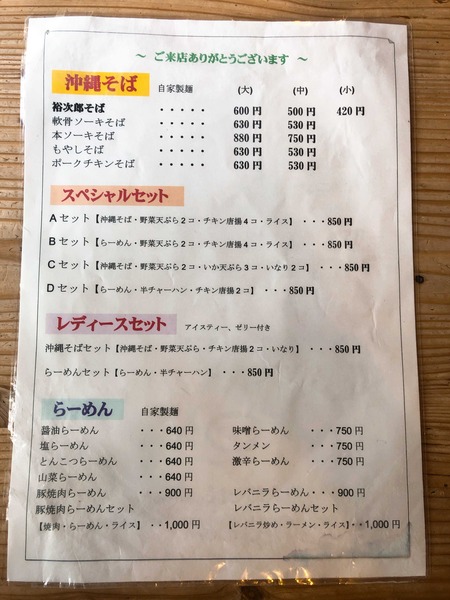 ～ ご来店ありがとうございます ～
沖縄そば 自家製麺 (大) (中) (小)
裕次郎そば ・・・・・ 600円 500円 420円
軟骨ソーキそば ・・・・・ 630円 530円
本ソーキそば ・・・・・ 880円 750円
もやしそば ・・・・・ 630円 530円
ポークチキンそば ・・・・・ 630円 530円
スペシャルセット
Aセット【沖縄そば・野菜天ぷら2コ・チキン唐揚4コ・ライス】 ・・・850円
Bセット【らーめん・野菜天ぷら2コ・チキン唐揚4コ・ライス】 ・・・850円
Cセット【沖縄そば・野菜天ぷら2コ・いか天ぷら3コ・いなり2コ】 ・・・850円
Dセット【らーめん・半チャーハン・チキン唐揚2コ】 ・・・850円
レディースセット アイスティー、ゼリー付き
沖縄そばセット【沖縄そば・野菜天ぷら・チキン唐揚2コ・いなり】 ・・・850円
らーめんセット【らーめん・半チャーハン】 ・・・850円
らーめん 自家製麺
醤油らーめん ・・・640円 味噌らーめん ・・・750円
塩らーめん ・・・640円 タンメン ・・・750円
とんこつらーめん ・・・640円 激辛らーめん ・・・750円
山菜らーめん ・・・640円
豚焼肉らーめん ・・・900円 レバニラらーめん ・・・900円
豚焼肉らーめんセット レバニラらーめんセット
【焼肉・らーめん・ライス】 ・・1,000円 【レバニラ炒め・ラーメン・ライス】・・1,000円